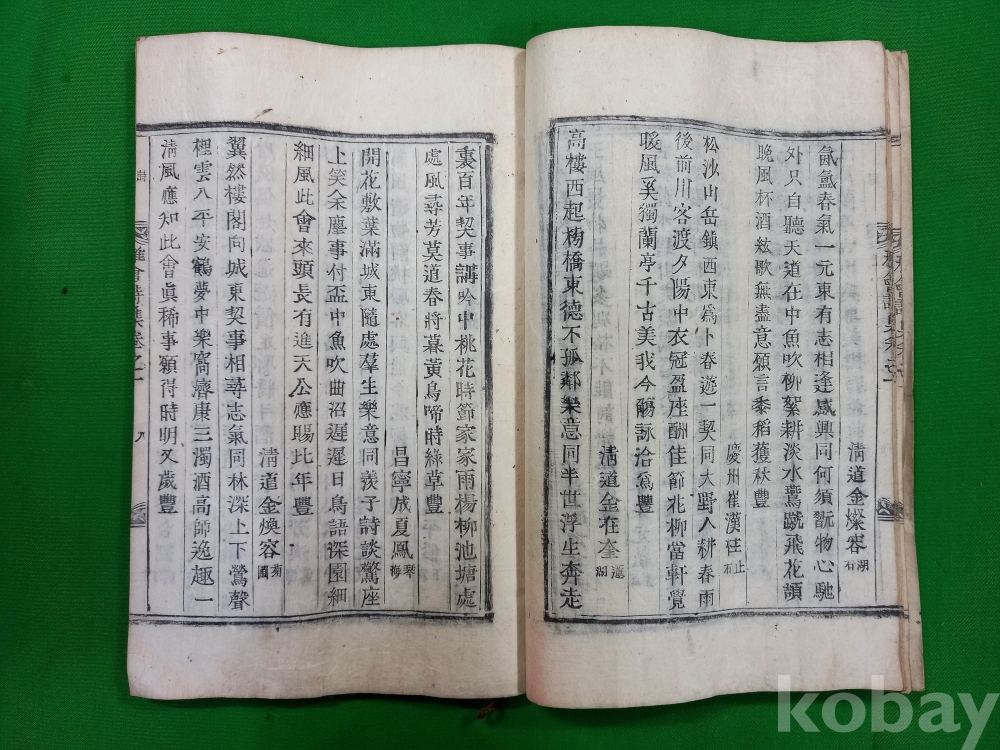 淸道金燦容 湖石
氤氳春氣一元東有志相逢感興同何須翫物心馳
外只自聽天道在中魚吹柳絮耕淡水鶯蹴飛花頷
晚風杯酒絃歌無盡意願言黍稻穫秋豐
慶州崔漢 止石
松沙山岳鎭西東爲卜春遊一契同大野人耕春雨
後前川客渡夕陽中衣冠盈座酬佳節花柳當軒覺
暖風奚獨蘭亭千古美我今觴詠洽爲豐
淸道金在奎 道湖
高樓西起楊橋東德不孤鄰樂意同半世浮生奔走
裏百年契事講吟中桃花時節家家雨楊柳池塘處
處風尋芳莫道春將暮黃鳥啼時綠草豐
昌寧成夏鳳 琴梅
開花敷葉滿城東隨處羣生樂意同羨子詩談驚座
上笑余塵事付盃中魚吹曲沼遲遲日鳥語深園細
細風此會來頭長有進天公應賜比年豐
淸道金煥容 菊圃
翼然樓閣向城東契事相尋志氣同林深上下鶯聲
裡雲八平安鶴夢中樂窩濟康三濁酒高師逸趣一
淸風應知此會眞稀事願得時明又歲豐
會詩集卷之一
九
kobay